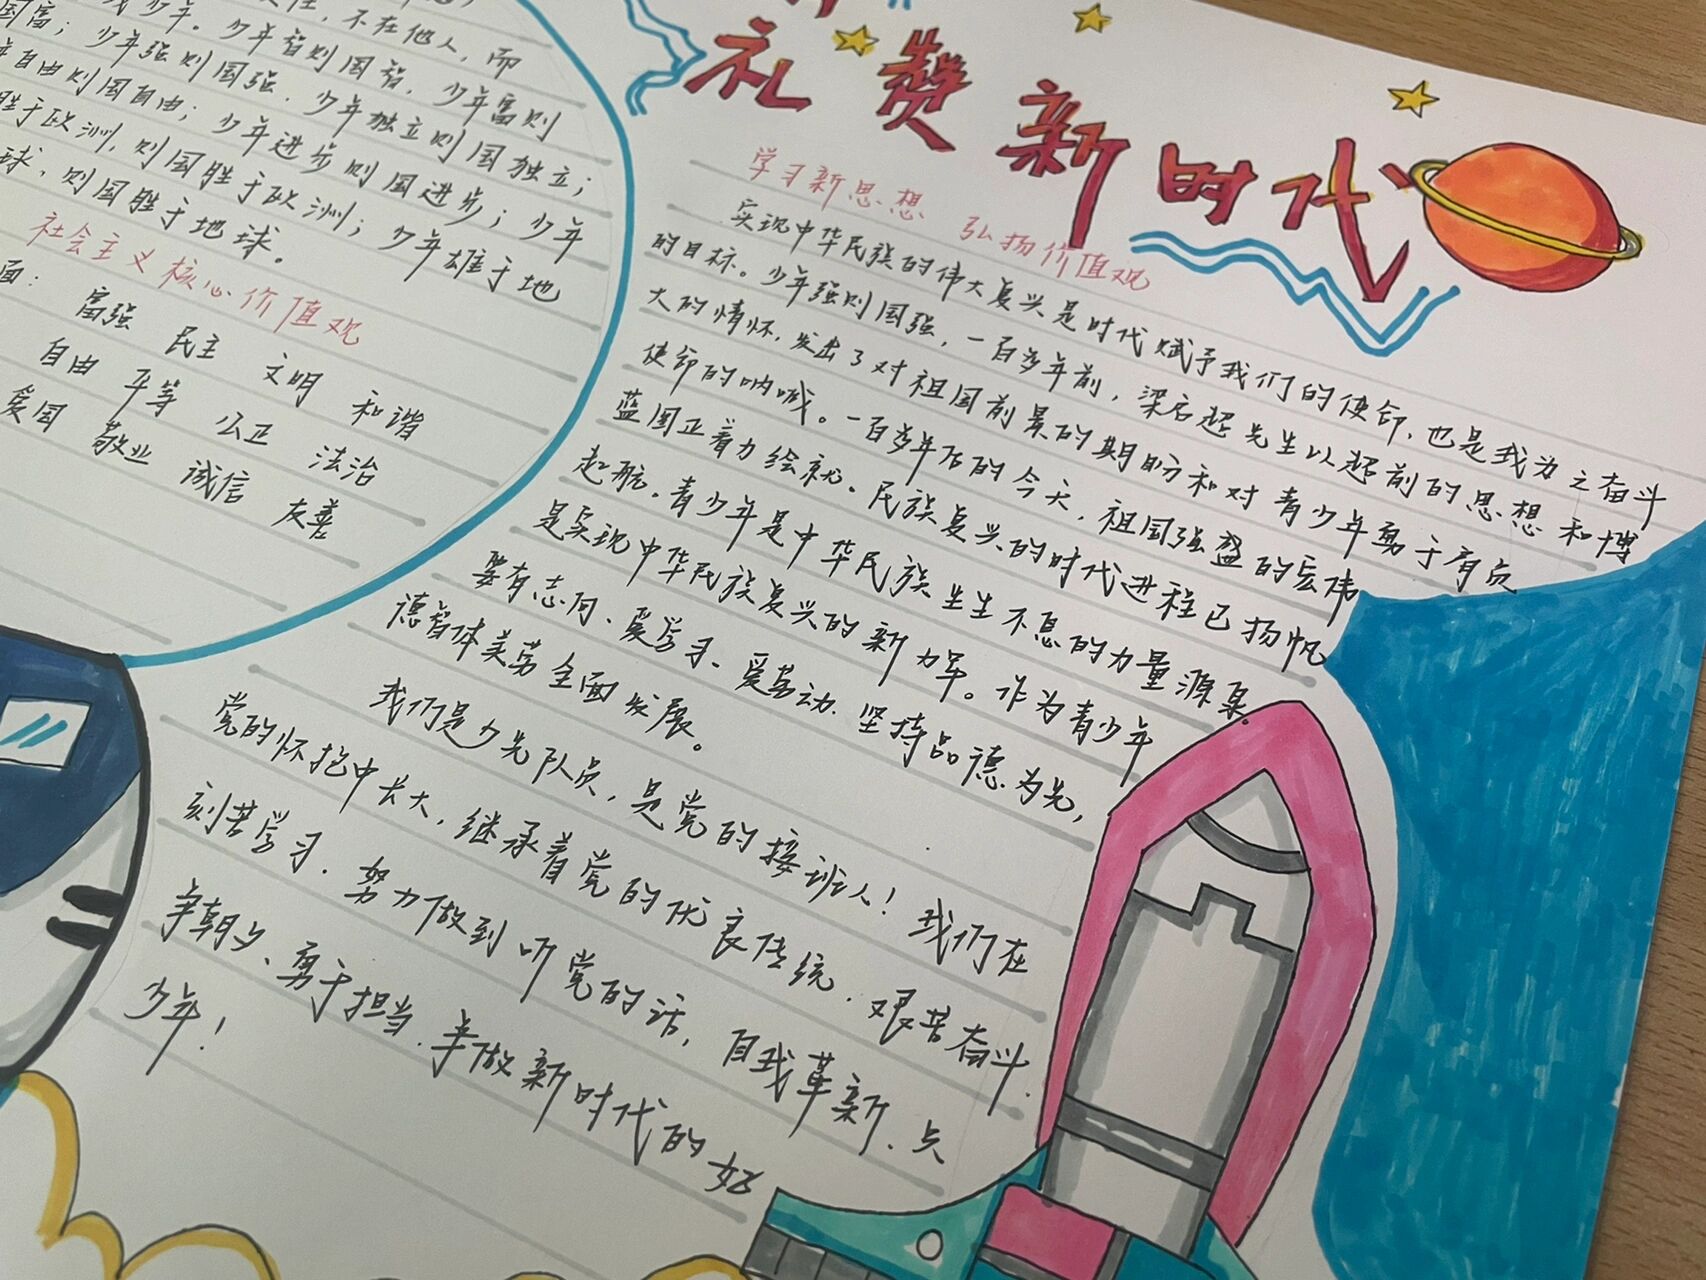 礼赞新时代
少年。少年智则国智，少年富则
国富；少年强则国强，少年独立则国独立；
自由则国自由；少年进步则国进步；少年
胜于欧洲，则国胜于欧洲；少年雄于地
球，则国胜于地球。
社会主义核心价值观
面：富强 民主 文明 和谐
自由 平等 公正 法治
爱国 敬业 诚信 友善
学习新思想 弘扬价值观
实现中华民族的伟大复兴是时代赋予我们的使命，也是我为之奋斗
的目标。少年强则国强，一百多年前，梁启超先生以超前的思想和博
大的情怀，发出了对祖国前景的期盼和对青少年勇于肩负
使命的呐喊。一百多年后的今天，祖国强盛的宏伟
蓝图正着力绘就。民族复兴的时代进程已扬帆
起航。青少年是中华民族生生不息的力量源泉。
是实现中华民族复兴的新力军。作为青少年
要有志向、爱学习、爱劳动、坚持品德为先，
德智体美劳全面发展。
我们是少先队员，是党的接班人！我们在
党的怀抱中长大，继承着党的优良传统，艰苦奋斗，
刻苦学习，努力做到听党的话，自我革新、只
争朝夕、勇于担当，争做新时代的好
少年！